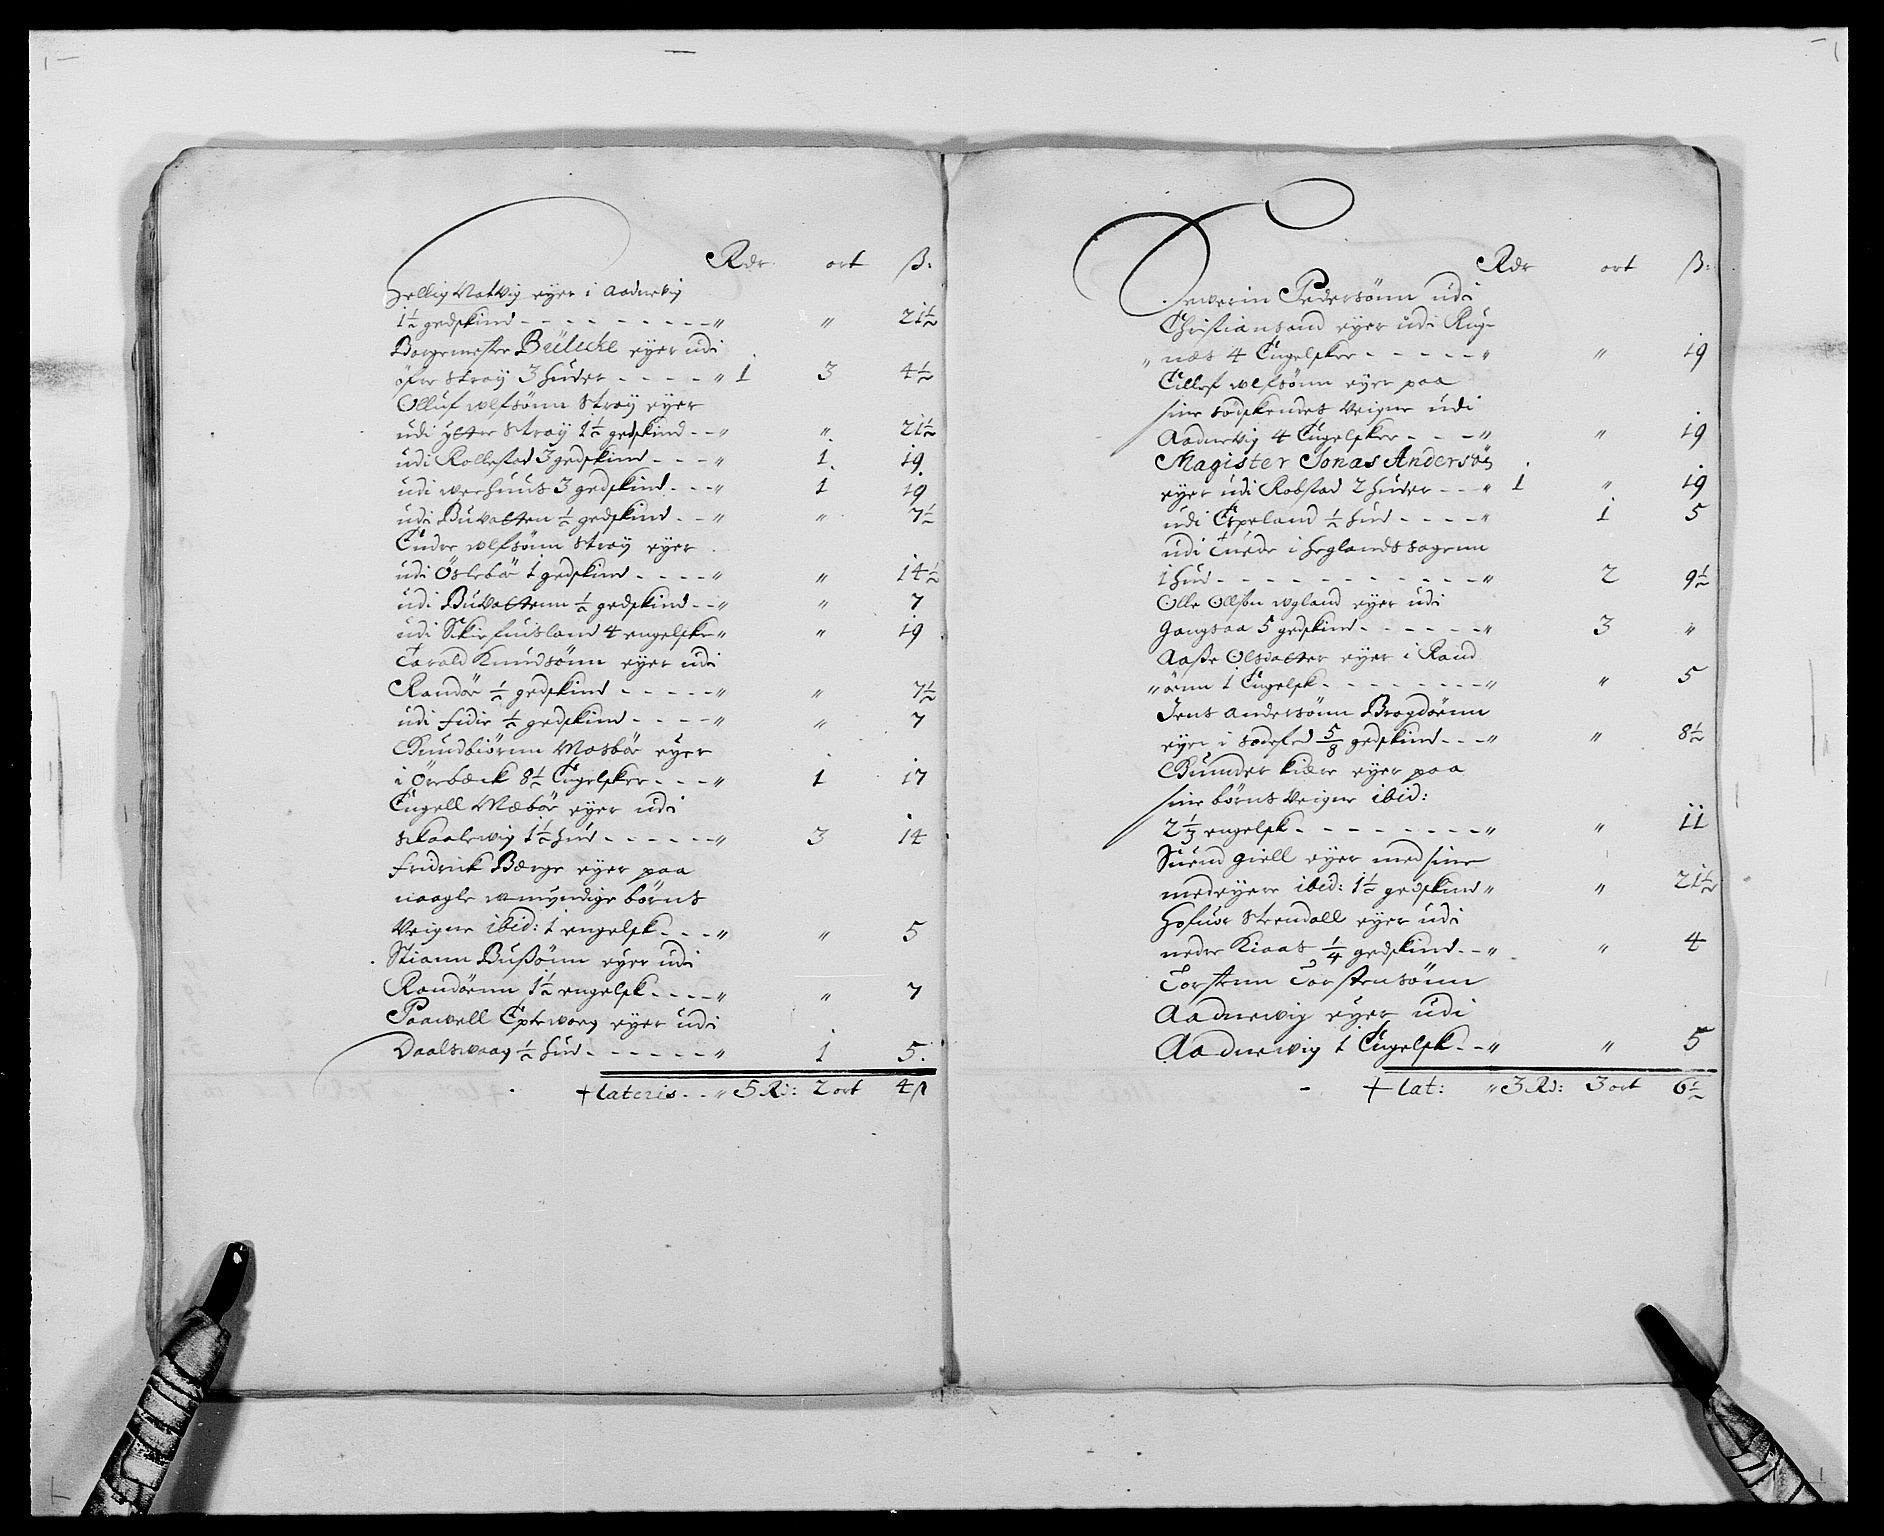 Rdr ort ß:
Hellig Vatvig eyer i Aadnevig
1½ gedskind - - - - - - - - - " " 21½
Borgemester Bülcke eyer udi
öfre Straÿ 3 huder - - - - " 1 3 4½
Olluf Ulfsönn Straÿ eyer
udi ÿtter Straÿ 1½ gedskind - - " " 21½
udi Rollestad 3 gedskind - - - " 1 19
udi werhuus 3 gedskind - - - " 1 19
udi Buvatten ½ gedskind - - " " 7½
Endre Ulfsönn Straÿ eyer
udi Öslebör 1 gedskind - - - - " " 14½
udi Buvattenn ½ gedskind - - " " 7
udi Skiefuisland 4 engelske " " 19
Tarald Knudsönn eyer udi
Randör ½ gedskind - - - - - " " 7½
udi fidie ½ gedskind - - - - " " 7
Gundbiörnn Mosbör eyer
i Örebæck 8½ Engelsker - - - " 1 17
Engell Mæbör eyer udi
Skaalevig 1½ hud - - - - - - " 3 14
Fridrick Børge eyer paa
naagle umÿndige börns
Veigne ibid: 1 engelsk - - - " " 5
Stiann Bußönn eyer udi
Randöenn 1½ engelsk - - - - " " 7
Paawell Eptevaag eyer udi
Daalsvaag ½ hud - - - - - - " 1 5
+ Lateris - - " 5 Rd: 2 ort 4 ß
Rdr ort ß:
Sewerin Pedersönn udi
Christiansand eyer udi Rug-
" næs 4 Engelsker - - - - - " " 19
Eillef Ulfsönn eyer paa
sine södskendes Veigne udi
Aadnevig 4 Engelsker - - - " " 19
Magister Jonas Andersön
eyer udi Robstad 2 huder - - - " 1 " 19
udi Espeland ½ hud - - - - " 1 5
udi Tuede i Heglands sogenn
1 hud - - - - - - - - - - - - " 2 9½
Olle Ollsön Ugland eyer udi
Gangsaa 5 gedskind - - - - - - " 3 "
Aaße Olsdatter eyer i Rand
" öenn 1 Engelsk - - - - - - - - " " 5
Jens Andersönn Bragdöenn
eyer i Sodefed 5/8 gedskind - - - " " 8½
Gunder Kiær eyer paa
sine börns Veigne ibid:
2 1/3 engelsk - - - - - - - - " " 11
Suend Giell eyer med sine
medeyere ibid: 1½ gedskind " " 21½
Hofuor Strendall eyer udi
nedre Kiaas ¼ gedskind - - " " 4
Torstenn Torstensönn
Aadnewig eyer udi
Aadnewig 1 Engelsk - - " " 5
+ Lat: " 3 Rd: 3 ort 6½